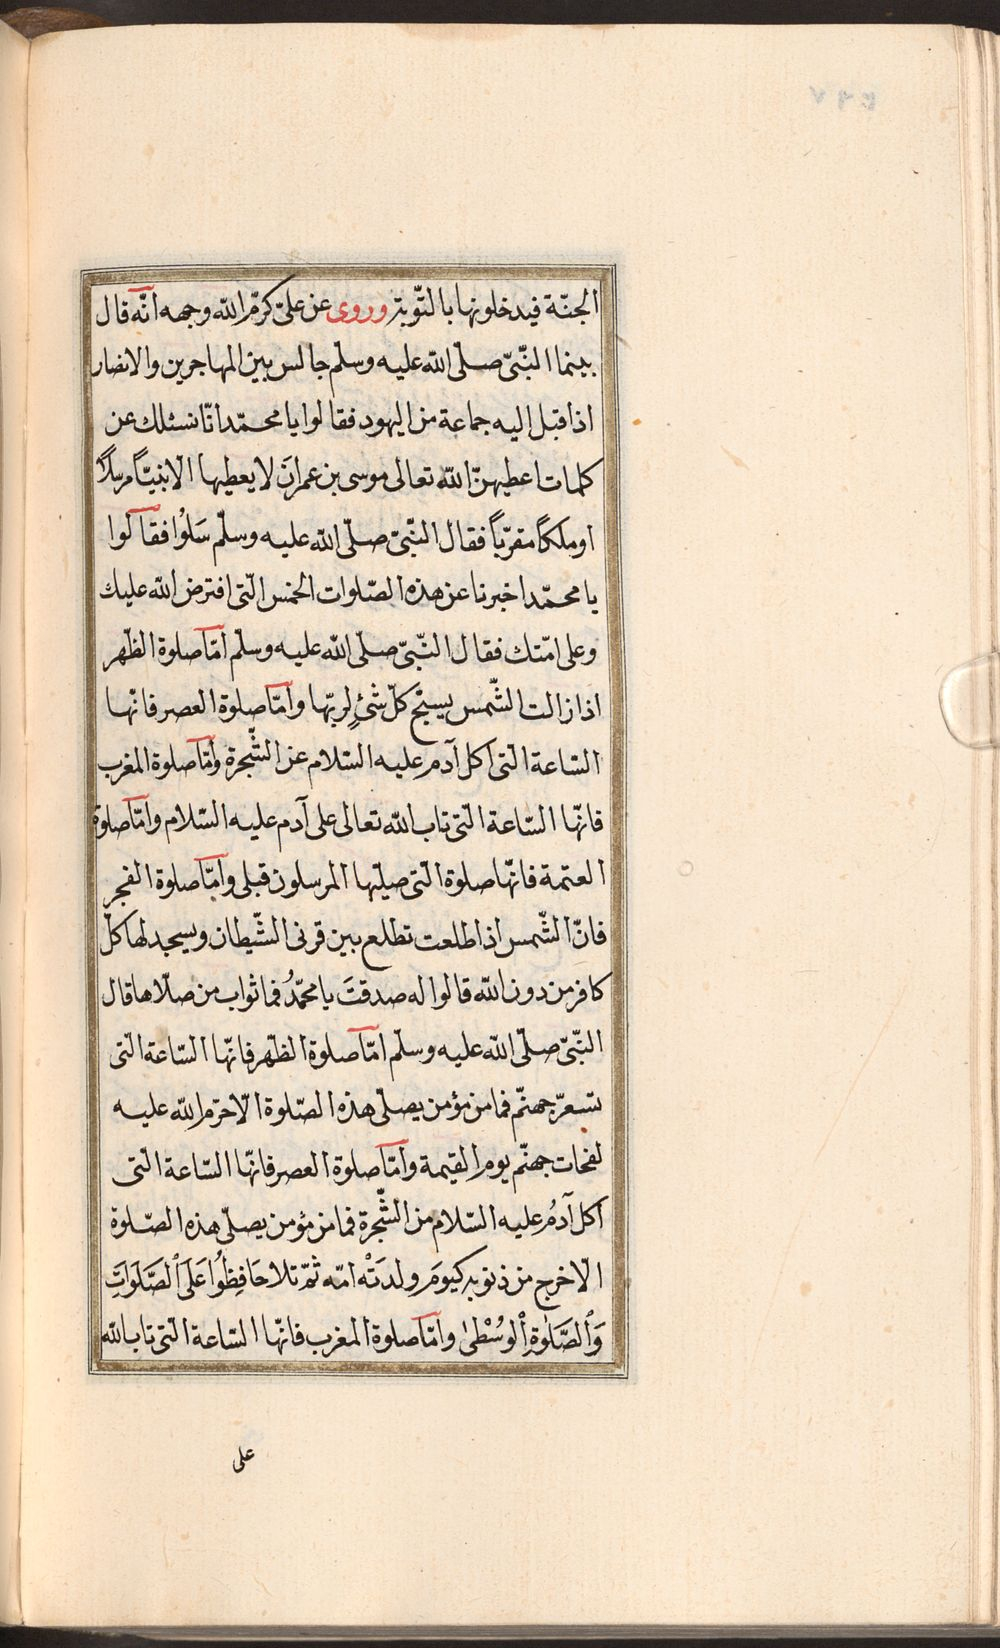 الجنّة فيدخلونها بالتّوبة وروى عن علىّ كرّم الله وجهه انّه قال
بينما النّبىّ صلّى الله عليه وسلّم جالس بين المهاجرين والانصار
اذا قبل اليه جماعة من اليهود فقالوا يا محمّد انّا نسئلك عن
كلمات اعطيهنّ الله تعالى موسى بن عمران لا يعطيها الا نبيّاً مرسلاً
او ملكاً مقرّباً فقال النّبىّ صلّى الله عليه وسلّم سَلُوا فقالوا
يا محمّد اخبرنا عن هذه الصّلوات الخمس الّتى افترض الله عليك
وعلى امّتك فقال النّبىّ صلّى الله عليه وسلّم امّا صلوة الظّهر
اذا زالت الشّمس يسبّح كلّ شئٍ لربّها وامّا صلوة العصر فانّها
السّاعة الّتى اكل آدم عليه السّلام عن الشّجرة وامّا صلوة المغرب
فانّها السّاعة الّتى تاب الله تعالى على آدم عليه السّلام وامّا صلوة
العتمة فانّها صلوة الّتى صيلّها المرسلون قبلى وامّا صلوة الفجر
فانّ الشّمس اذا طلعت تطلع بين قرنى الشّيطان ويسجد لها كلّ
كافر من دون الله قالوا له صدقتَ يا محمّدُ فما ثواب من صلّاها قال
النّبىّ صلّى الله عليه وسلّم امّا صلوة الظّهر فانّها السّاعة الّتى
تسعرّ جهنّم فما من مؤمن يصلّى هذه الصّلوة الّا حرّم الله عليه
لفحات جهنّم يوم القيمة وامّا صلوة العصر فانّها السّاعة الّتى
اكل آدمُ عليه السّلام من الشّجرة فما من مؤمن يصلّى هذه الصّلوة
الّا خرج من ذنوبه كيومَ ولدَتْه امّه ثمّ تلا حَافِظُوا عَلَى ٱلصَّلَوَاتِ
وَٱلصَّلٰوةِ ٱلْوُسْطٰى وامّا صلوة المغرب فانّها السّاعة الّتى تاب الله
على